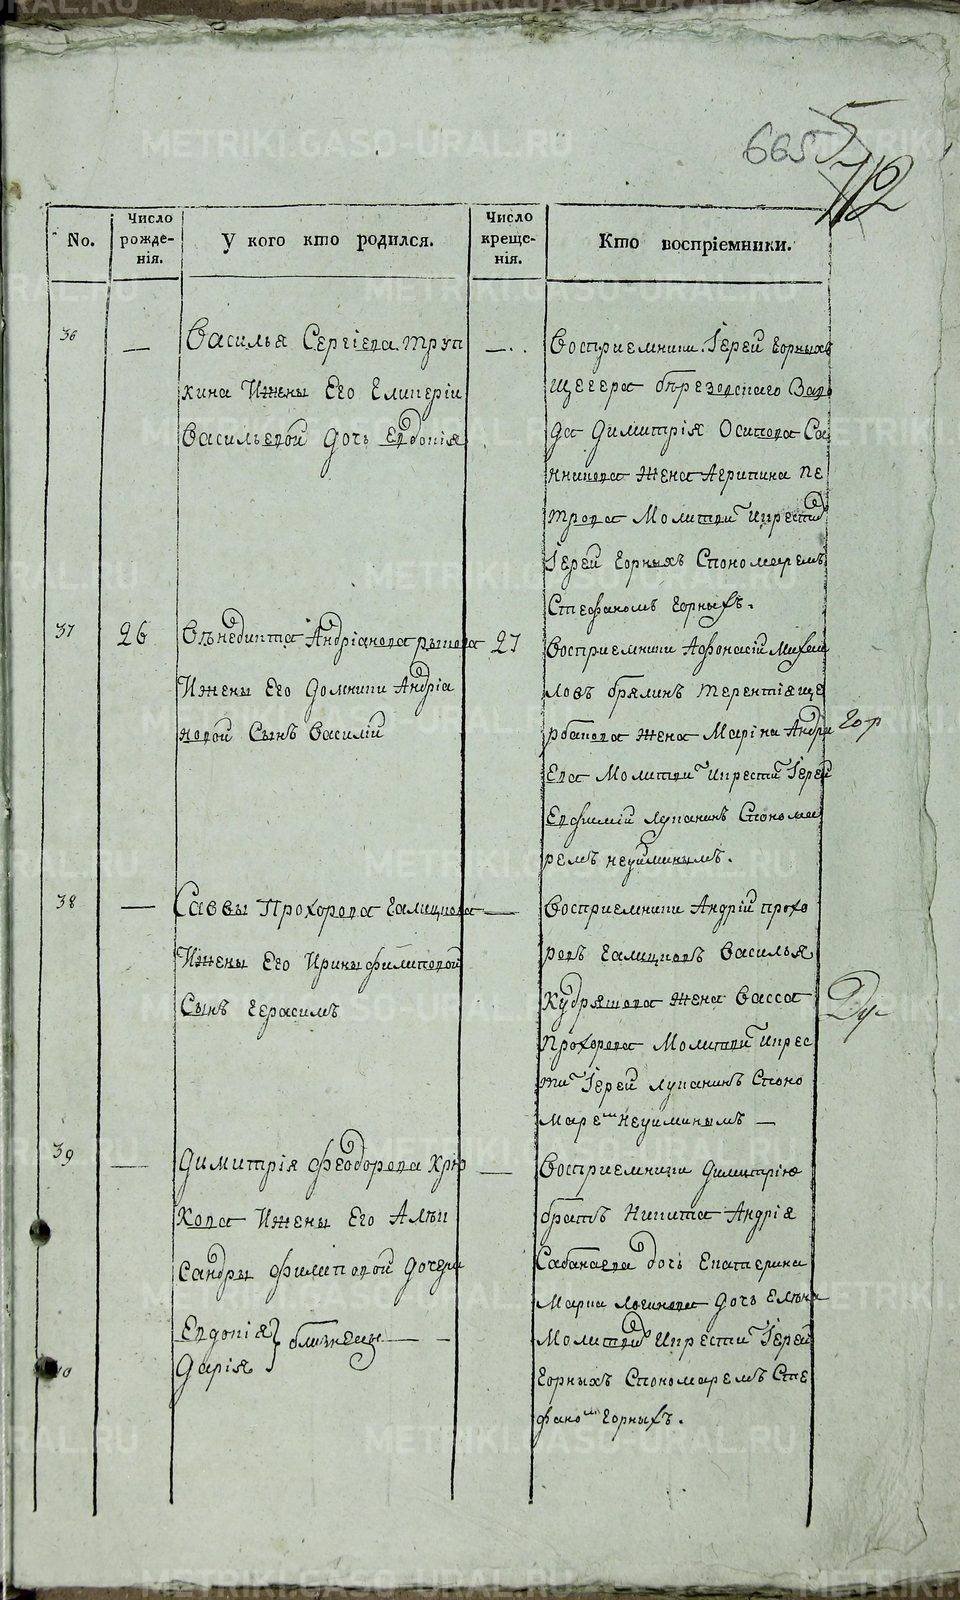 665
5
712
No.
Число рожде-нія.
У кого кто родился.
Число креще-нія.
Кто воспріемники.
36
—
Василья Сергіева Труп
кина Ижены Его Гликеріи
Васильевой дочь Евдокія
—
Восприемники Іерей Горныхъ
Щегера бѣрезовскаго Заво
да Димитрія Осипова Са
нникова жена Агрипина Пе
трова Молитви Икрести
Іерей Горныхъ Спономаремъ
Стефаномъ Горныхъ.
37
26
Вѣнедикта Андріанова
Ижены Его Домники Андріа
новой Сынъ Василій
27
Восприемники Афонасій Михаи
ловъ брялинъ Терентія ще
рбакова жена Маріна Андри
Ева Молитви Икрести Іерей
Евфимій Лупанинъ Спонома
ремъ неуйминымъ.
38
—
Саввы Прохорова Галицкова
Ижены Его Ирины филиповой
Сынъ Герасимъ
—
Восприемники Андрій прохо
ровъ Галицковъ Василья
Кудряшова жена Васса
Прохорова Молитви Икрес
ти Іерей Лупанинъ Споно
маремъ неуйминымъ —
39
—
Димитрія Феодорова Крю
кова Ижены Его Алѣк
сандры Филиповой дочери
Евдокія
Дарія } близнецы — -
—
Восприемники Димитрію
братъ Никита Андрія
Сабанаева дочь Екатерина
Марка Логинова дочь Елѣна
Молитви Икрести Іерей
Горныхъ Спономаремъ Сте
фаномъ Горныхъ.